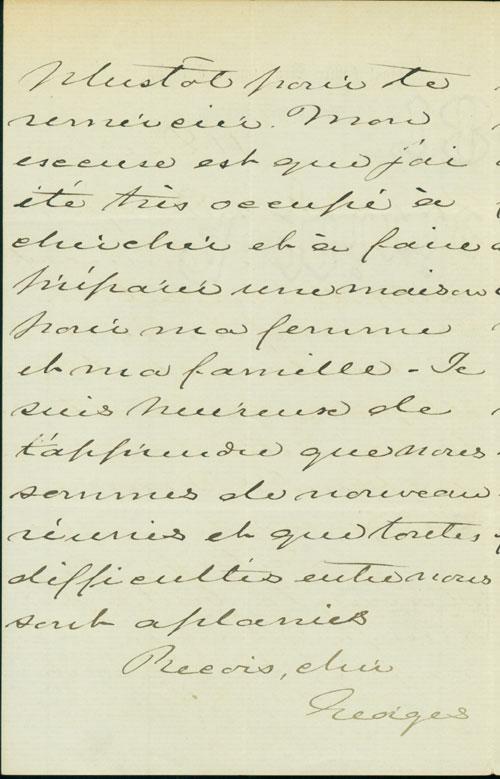 plustôt pour te
remércier. Mon
escuse est que j'ai
été très occupé à
chercher et à faire
préparer une maison
pour ma femme
et ma famille - Je
suis heureux de
t'apprendre que nous
sommes de nouveau
réunies et que toutes
difficultés entre nous
sont aplanies
Recois, cher
Georges